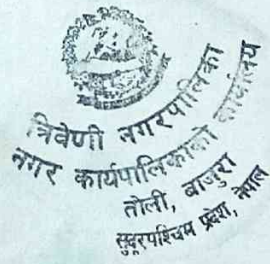 त्रिवेणी नगरपालिका
नगर कार्यपालिकाको कार्यालय
तोली, बाजुरा
सुदूरपश्चिम प्रदेश, नेपाल